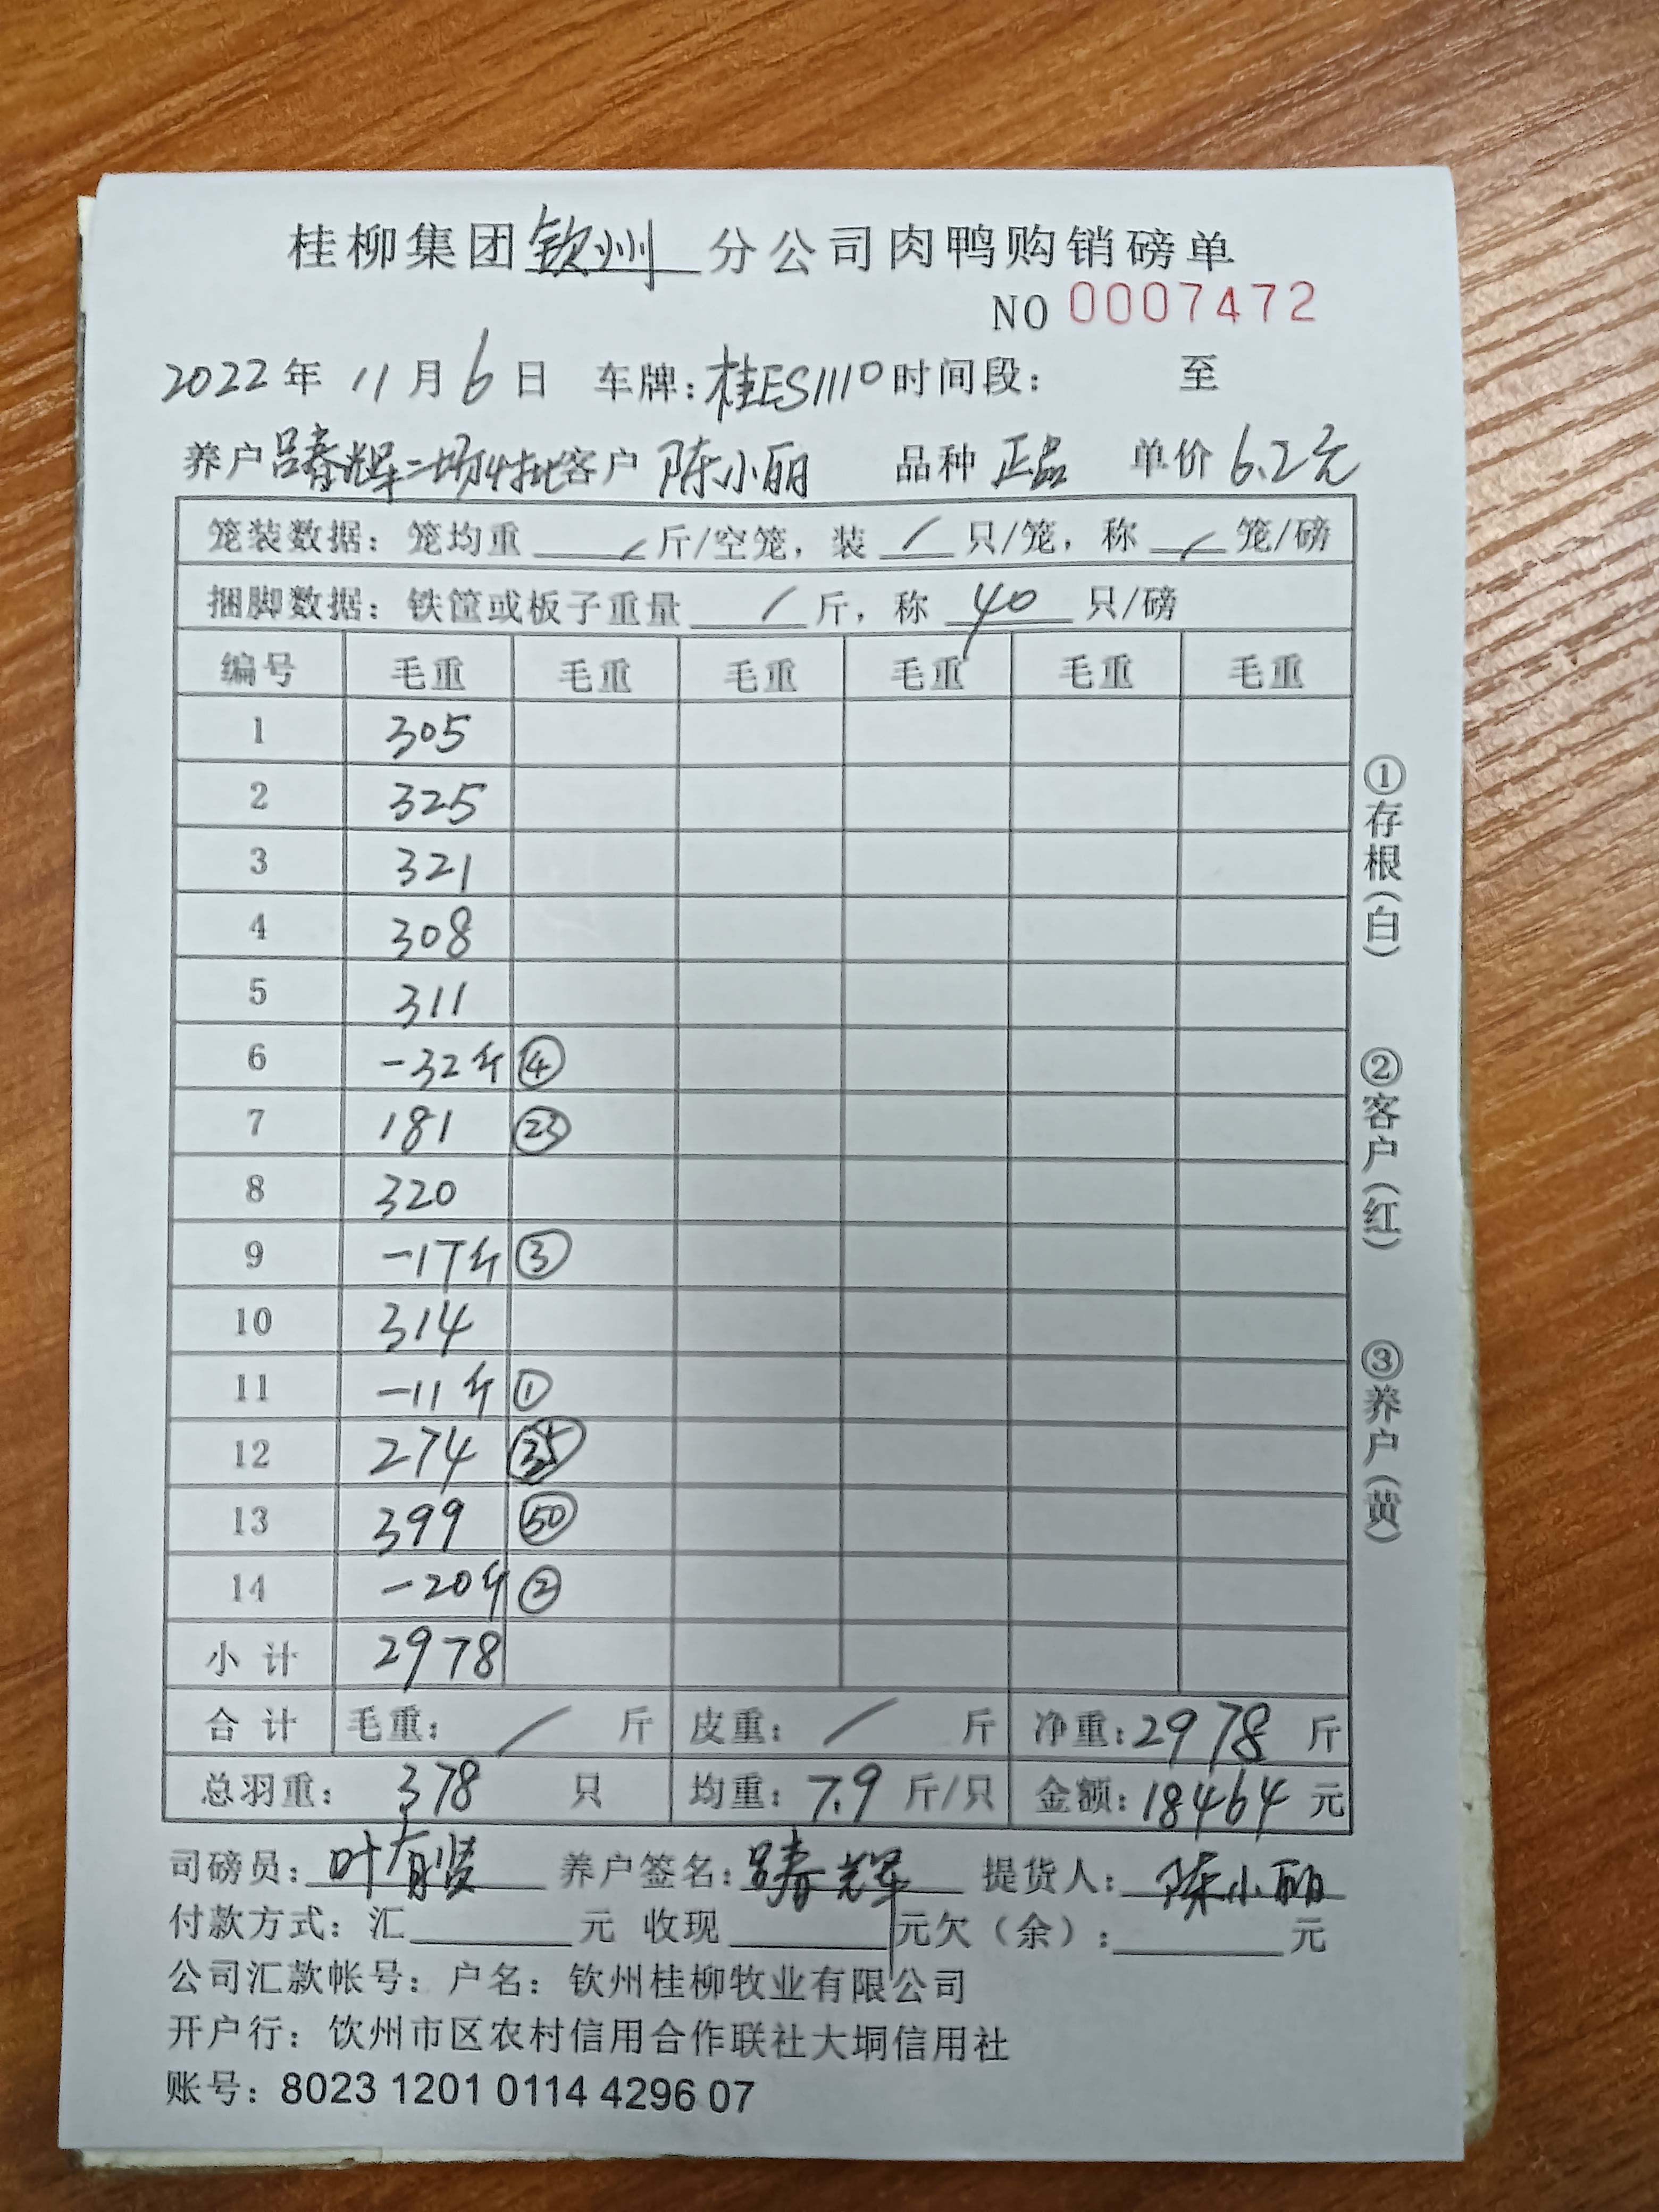 桂柳集团钦州分公司肉鸭购销磅单
NO 0007472
2022年 11月 6日 车牌:桂ES1110 时间段: 至
养户 吕春辉二场4批 客户 陈小丽 品种 正品 单价 6.2元
笼装数据:笼均重 / 斤/空笼,装 / 只/笼,称 / 笼/磅
捆脚数据:铁筐或板子重量 / 斤,称 40 只/磅
编号 毛重 毛重 毛重 毛重 毛重 毛重
1 305
2 325
3 321
4 308
5 311
6 -32斤 ④
7 181 ㉓
8 320
9 -17斤 ③
10 314
11 -11斤 ①
12 274 ㉟
13 399 ㊿
14 -20斤 ②
小计 2978
合计 毛重: / 斤 皮重: / 斤 净重:2978 斤
总羽重: 378 只 均重:7.9 斤/只 金额:18464 元
司磅员:叶有贤 养户签名:吕春辉 提货人:陈小丽
付款方式:汇 元 收现 元欠(余): 元
公司汇款帐号:户名:钦州桂柳牧业有限公司
开户行:钦州市区农村信用合作联社大垌信用社
账号:8023 1201 0114 4296 07
①存根(白) ②客户(红) ③养户(黄)